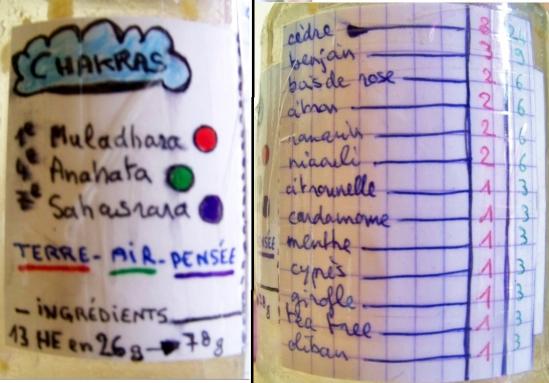 CHAKRAS
1e Muladhara
4e Anahata
7e Sahasrara
TERRE - AIR - PENSÉE
- INGRÉDIENTS
13 HE en 26g → 78g
cèdre 8 24
benjoin 3 9
bois de rose 2 6
citron 2 6
romarin 2 6
niaouli 2 6
citronnelle 1 3
cardamome 1 3
menthe 1 3
cyprès 1 3
girofle 1 3
tea tree 1 3
oliban 1 3